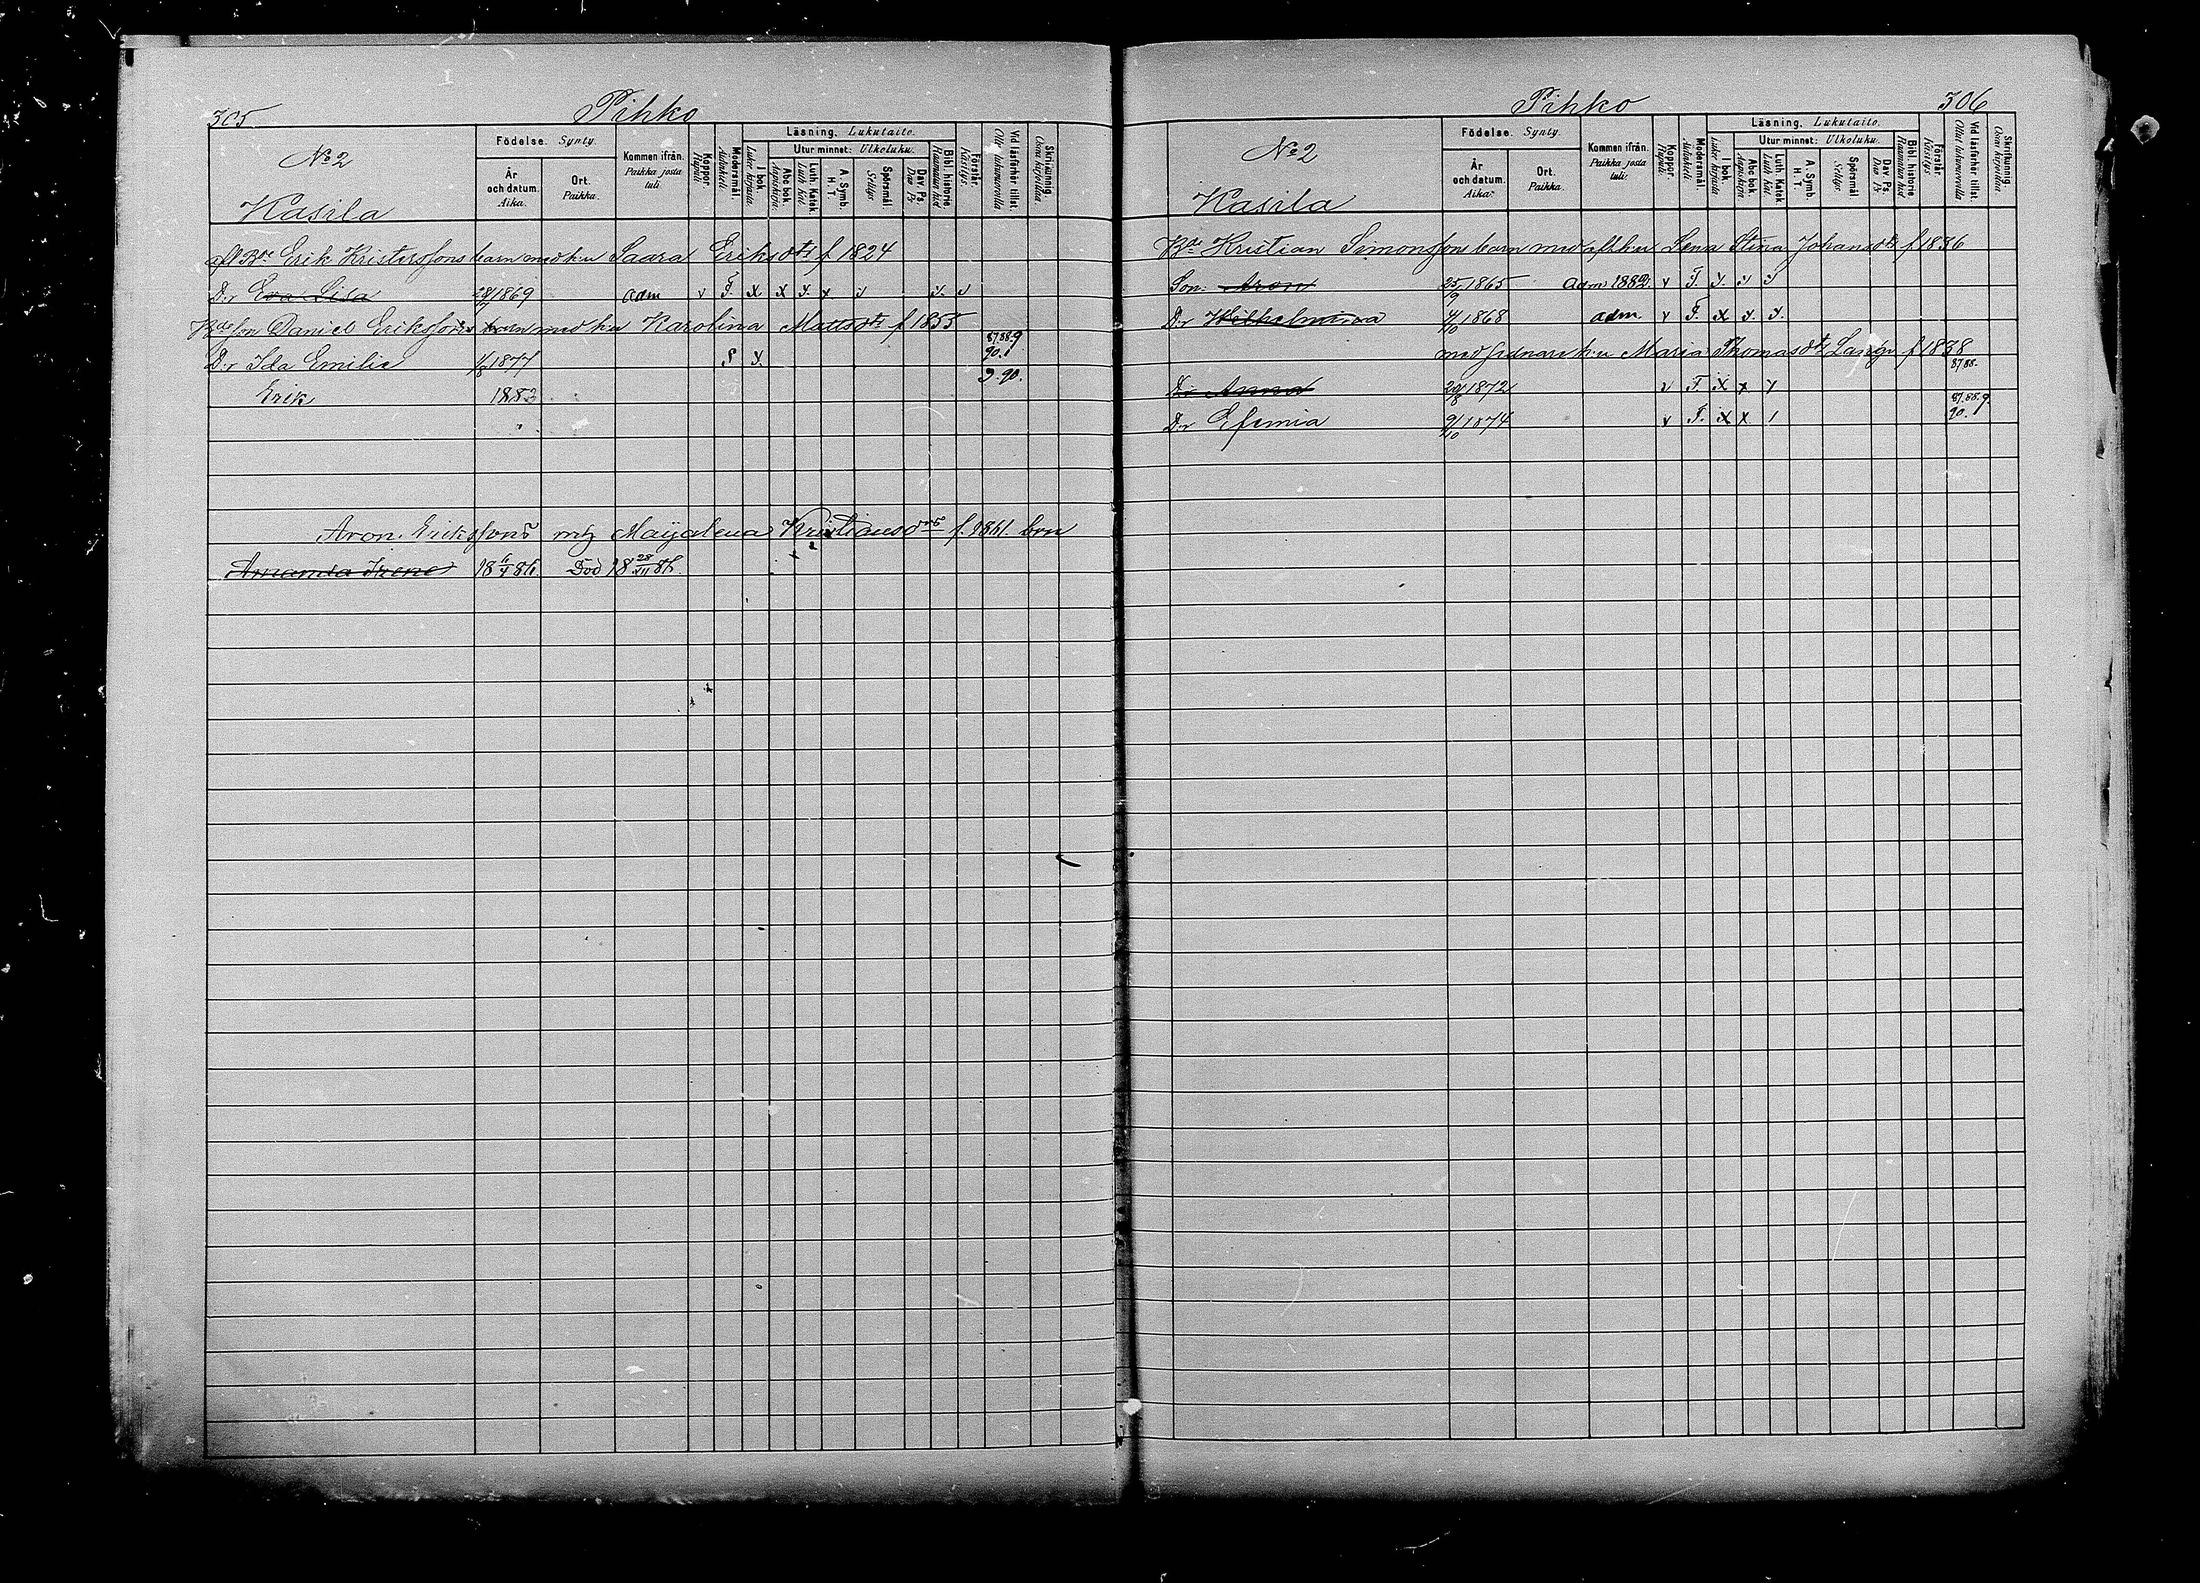 305 Pihko
No 2
Kasila
Födelse. Synty.
År och datum. Aika.
Ort. Paikka.
Kommen ifrån. Paikka josta tuli.
Koppor. Rupuli
Modersmål. Äidinkieli
Läsning. Lukutaito.
I bok. Lukee kirjasta.
Utur minnet: Ulkoluku.
Abc bok. Aapiskirja.
Luth. Katek Luth Kat.
A. Symb. H. T.
Spörsmål. Selitys.
Dav. Ps. Dav. Ps
Bibl. historie Raamatun hist
Förstår. Käsitys.
Vid läsförhör tillst. Ollut lukuvuorolla
Skrifkunnig. Osaa kirjoittaa.
afl Bde Erik Kristersfons barn med h:u Saara Eriksdtr f 1824
D:r Eva Lisa 1869 adm v F. x x y. x
Bdeson Daniel Eriksfons barn med h:u Karolina Mattsdtr f 1855
87.88.9
D:r Ida Emilie 1877 y. 90.
Erik 1883 9.90.
Aron Eriksfons m h Maijalena Kristiansdtr f. 1861. barn
Amanda Irene 18 86. Död 18 28/III 86.
Pihko 306
No 2
Kasila
Födelse. Synty.
År och datum. Aika.
Ort. Paikka.
Kommen ifrån. Paikka josta tuli.
Koppor. Rupuli.
Modersmål. Äidinkieli
Läsning. Lukutaito.
I bok. Lukee kirjasta
Utur minnet: Ulkoluku.
Abc bok. Aapiskirja
Luth. Katek Luth Kat.
A. Symb. H. T.
Spörsmål Selitys.
Dav. Ps. Dav. Ps
Bibl. historie Raamatun hist
Förstår Käsitys
Vid läsförhör tillst. Ollut lukuvuorolla
Skrifkunnig. Osaa kirjoittaa
Bde Kristian Simonsfons barn med afl h:u Lena Stina Johansdtr f 1836
Son: Aron 25/9 1865 adm 1882. v F. y.
D:r Wilhelmina 4/10 1868 adm v F. x y. y.
med sednare h:u Maria Thomasdtr f 1838
87 88.
D:r Anna 1872 v F x x y
87.88.9
D:r Efemia 9/10 1874 v F. x x 90.